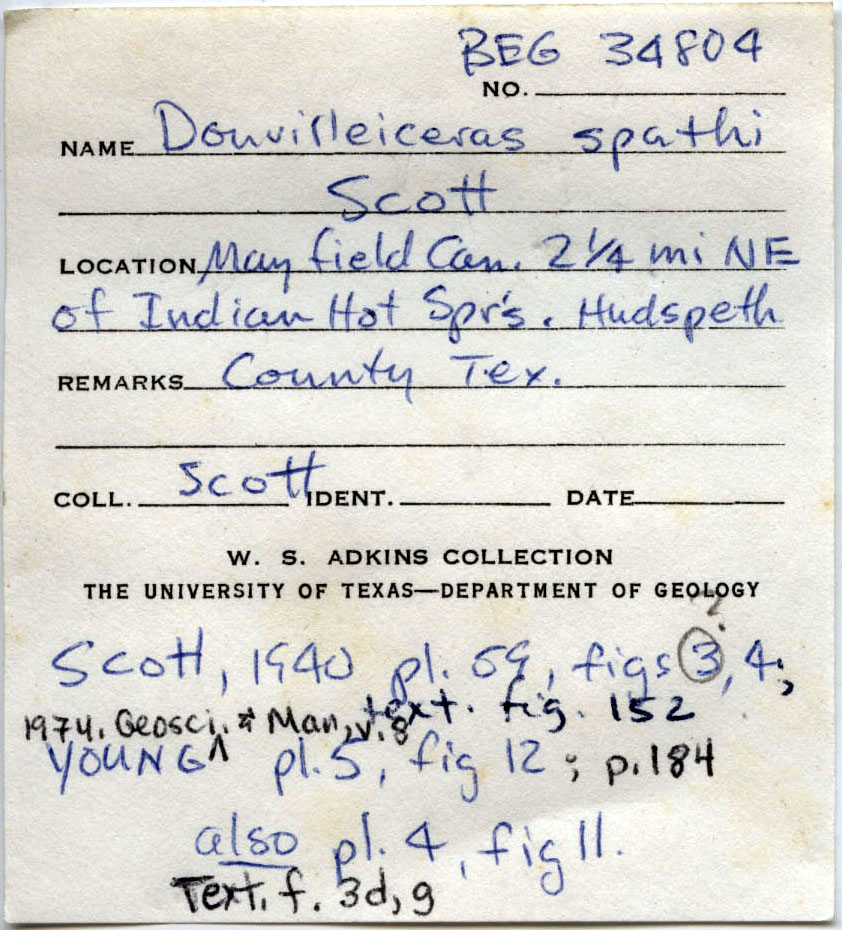 BEG 34804
NO.
NAME Douvilleiceras spathi
Scott
LOCATION Mayfield Can. 2 1/4 mi NE
of Indian Hot Spr's. Hudspeth
REMARKS County Tex.
COLL. Scott IDENT. DATE
W. S. ADKINS COLLECTION
THE UNIVERSITY OF TEXAS—DEPARTMENT OF GEOLOGY
?
Scott, 1940 pl. 59, figs 3, 4;
text. fig. 152
1974. Geosci. & Man, v. 8
YOUNG ^ pl. 5, fig 12 ; p. 184
also pl. 4, fig 11.
Text. f. 3d, g